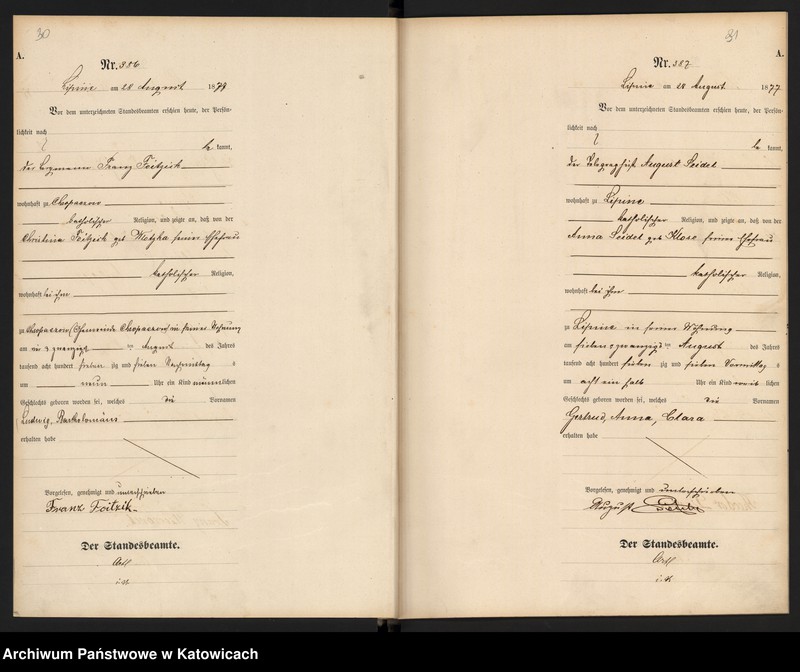 30
A.
Nr. 386
Lipine am 28 August 1877
Vor dem unterzeichneten Standesbeamten erschien heute, der Persön-
lichkeit nach
be kannt,
der Bergmann Franz Foitzik
wohnhaft zu Chropaczow
katholischer Religion, und zeigte an, daß von der
Christina Foitzik geb seine Ehefrau
katholischer Religion,
wohnhaft bei ihm
zu Chropaczow in seiner Wohnung
am zwanzigsten August des Jahres
tausend acht hundert sieben zig und sieben Nachmittag s
um neun Uhr ein Kind männlichen
Geschlechts geboren worden sei, welches die Vornamen
Ludwig, Bartholomäus
erhalten habe
Vorgelesen, genehmigt und unterschrieben
Franz Foitzik
Der Standesbeamte.
31
A.
Nr. 387
Lipine am 28 August 1877
Vor dem unterzeichneten Standesbeamten erschien heute, der Persön-
lichkeit nach
be kannt,
der Telegraphist August Seidel
wohnhaft zu Lipine
katholischer Religion, und zeigte an, daß von der
Anna Seidel geb Klose seine Ehefrau
katholischer Religion,
wohnhaft bei ihm
zu Lipine in seiner Wohnung
am August des Jahres
tausend acht hundert sieben zig und sieben Vormittag s
um acht ein halb Uhr ein Kind weib lichen
Geschlechts geboren worden sei, welches die Vornamen
Gertrud, Anna, Clara
erhalten habe
Vorgelesen, genehmigt und unterschrieben
August Seidel
Der Standesbeamte.
Archiwum Państwowe w Katowicach